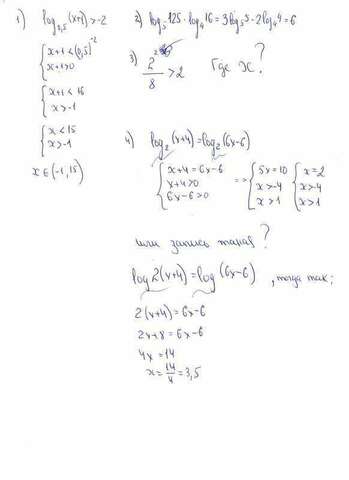 1) log₀,₅(x+1) > -2
{ x+1 < (0,5)⁻²
x+1>0
{ x+1 < 16
x > -1
{ x < 15
x > -1
x ∈ (-1, 15)
2) log₅125 · log₄16 = 3log₅5 · 2log₄4 = 6
3) 2²/8 > 2 Где x?
4) log₂(x+4) = log₂(6x-6)
{ x+4 = 6x-6
x+4>0
6x-6>0
=> { 5x=10
x>-4
x>1
{ x=2
x>-4
x>1
или запись такая?
log2(x+4) = log(6x-6), тогда так;
2(x+4) = 6x-6
2x+8 = 6x-6
4x = 14
x = 14/4 = 3,5